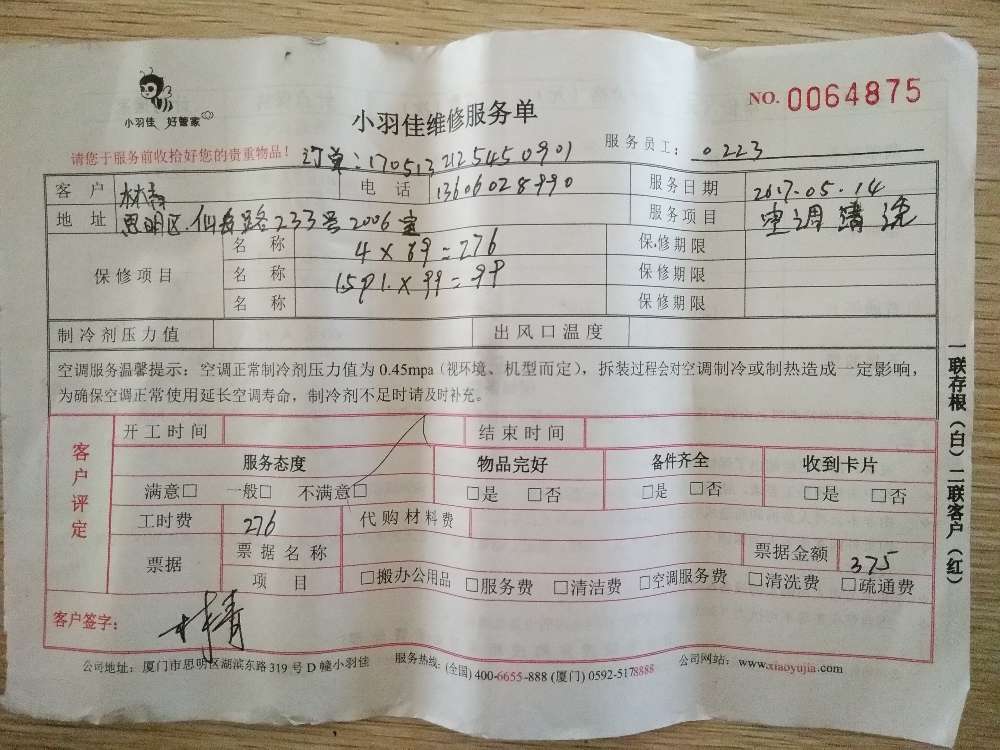 小羽佳 好管家
小羽佳维修服务单
NO. 0064875
请您于服务前收拾好您的贵重物品！
订单：170513212545450901
服务员工： 0223
客户 电话 13606028990 服务日期 2017.05.14
地址 思明区 仙岳路233号2006室 服务项目 空调清洗
保修项目 名称 4×69=276 保修期限
名称 1.5P1.×99=99 保修期限
名称 保修期限
制冷剂压力值 出风口温度
空调服务温馨提示：空调正常制冷剂压力值为 0.45mpa（视环境、机型而定），拆装过程会对空调制冷或制热造成一定影响，
为确保空调正常使用延长空调寿命，制冷剂不足时请及时补充。
客户评定 开工时间 结束时间
服务态度 物品完好 备件齐全 收到卡片
满意□ 一般□ 不满意□ □是 □否 □是 □否 □是 □否
工时费 276 代购材料费
票据 票据名称 票据金额 375
项目 □搬办公用品 □服务费 □清洁费 □空调服务费 □清洗费 □疏通费
客户签字：
公司地址：厦门市思明区湖滨东路 319 号 D 幢小羽佳 服务热线：(全国) 400-6655-888 (厦门) 0592-5178888 公司网站：www.xiaoyujia.com
一联存根（白）二联客户（红）